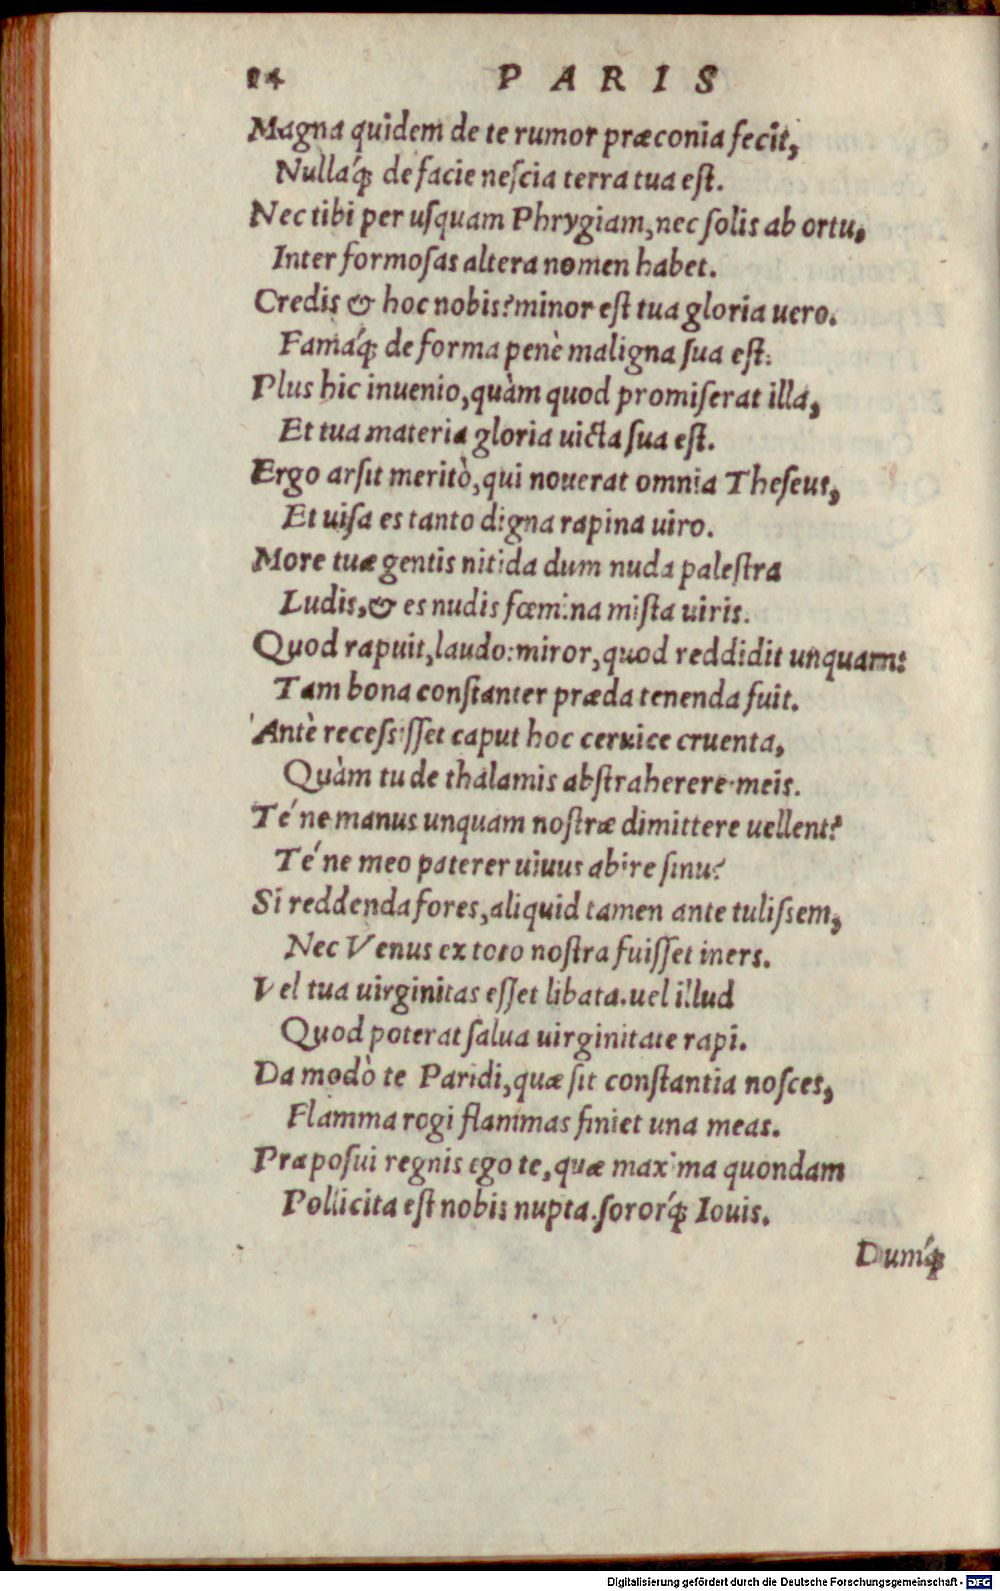 84 PARIS
Magna quidem de te rumor præconia fecit,
Nullaq́; de facie neſcia terra tua eſt.
Nec tibi per uſquam Phrygiam, nec ſolis ab ortu,
Inter formoſas altera nomen habet.
Credis & hoc nobis? minor eſt tua gloria uero.
Famaq́; de forma penè maligna ſua eſt.
Plus hic inuenio, quàm quod promiſerat illa,
Et tua materia gloria uicta ſua eſt.
Ergo arſit meritò, qui nouerat omnia Theſeus,
Et uiſa es tanto digna rapina uiro.
More tuæ gentis nitida dum nuda paleſtra
Ludis, & es nudis fœmina miſta uiris.
Quod rapuit, laudo: miror, quod reddidit unquam:
Tam bona conſtanter præda tenenda fuit.
Antè receſsiſſet caput hoc ceruice cruenta,
Quàm tu de thalamis abſtraherere meis.
Té ne manus unquam noſtræ dimittere uellent?
Té ne meo paterer uiuus abire ſinu?
Si reddenda fores, aliquid tamen ante tuliſsem,
Nec Venus ex toto noſtra fuiſſet iners.
Vel tua uirginitas eſſet libata. uel illud
Quod poterat ſalua uirginitate rapi.
Da modò te Paridi, quæ ſit conſtantia noſces,
Flamma rogi flammas finiet una meas.
Præpoſui regnis ego te, quæ maxima quondam
Pollicita eſt nobis nupta. ſororq́; Iouis.
Dumq́;
Digitalisierung gefördert durch die Deutsche Forschungsgemeinschaft - DFG